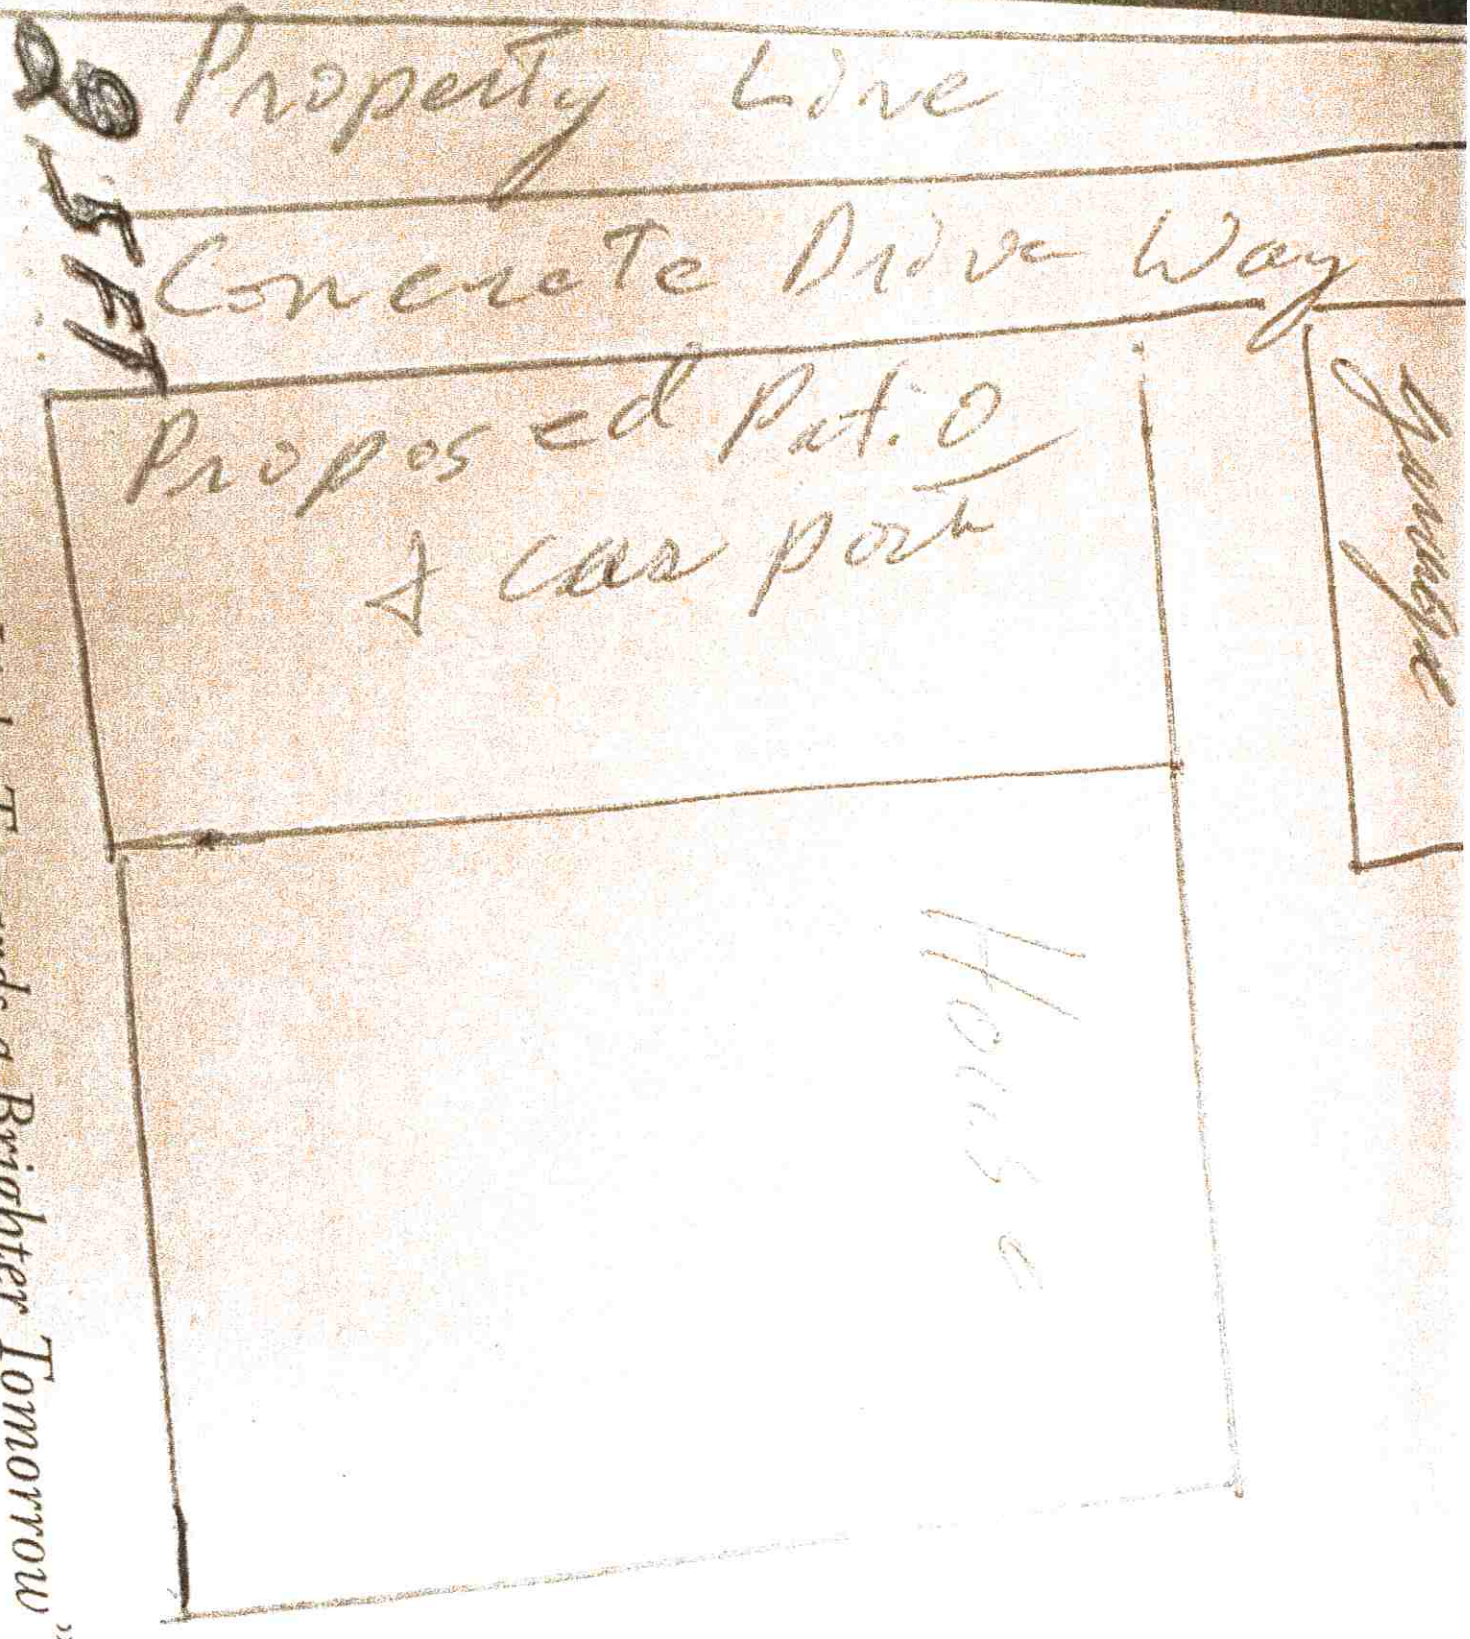 Property Line
Concrete Drive Way
Proposed Patio
& car port
Garage
House
Towards a Brighter Tomorrow”